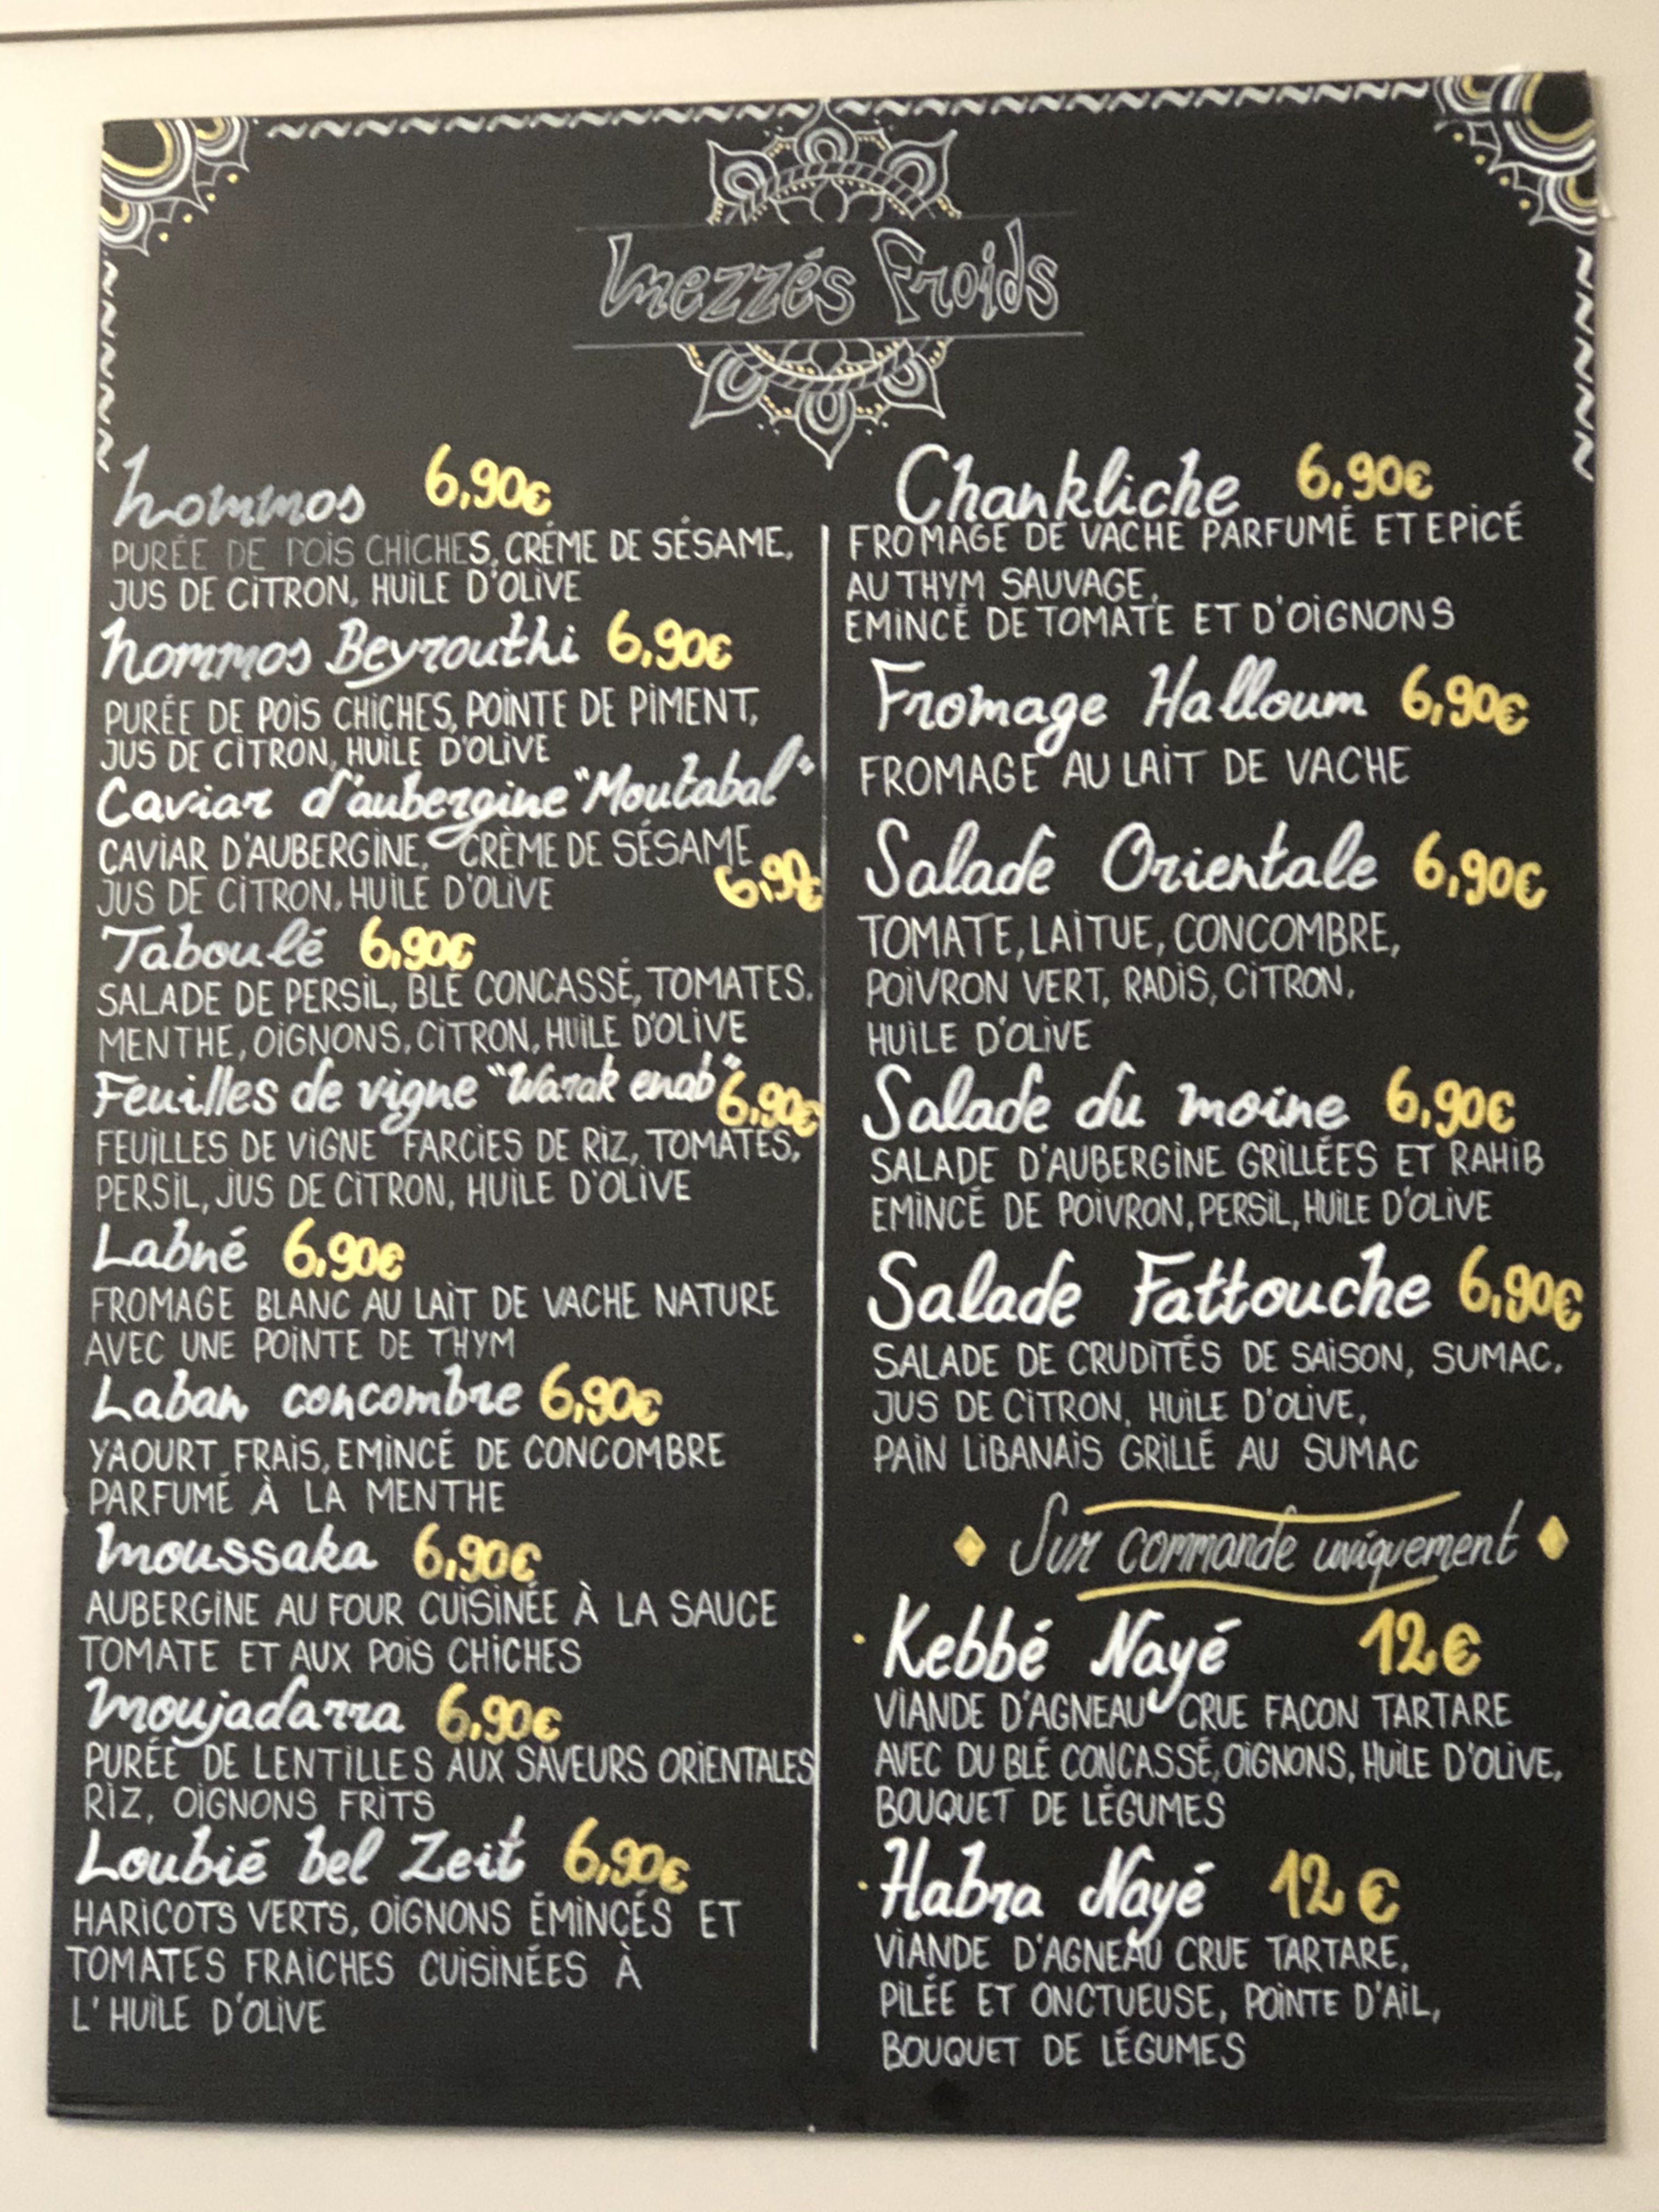 Mezzés Froids
Hommos 6,90€
PURÉE DE POIS CHICHES, CRÉME DE SÉSAME,
JUS DE CITRON, HUILE D'OLIVE
Hommos Beyrouthi 6,90€
PURÉE DE POIS CHICHES, POINTE DE PIMENT,
JUS DE CITRON, HUILE D'OLIVE
Caviar d'aubergine "Moutabal"
CAVIAR D'AUBERGINE, CRÈME DE SÉSAME
JUS DE CITRON, HUILE D'OLIVE 6,90€
Taboulé 6,90€
SALADE DE PERSIL, BLÉ CONCASSÉ, TOMATES,
MENTHE, OIGNONS, CITRON, HUILE D'OLIVE
Feuilles de vigne "Warak enab" 6,90€
FEUILLES DE VIGNE FARCIES DE RIZ, TOMATES,
PERSIL, JUS DE CITRON, HUILE D'OLIVE
Labné 6,90€
FROMAGE BLANC AU LAIT DE VACHE NATURE
AVEC UNE POINTE DE THYM
Laban concombre 6,90€
YAOURT FRAIS, EMINCÉ DE CONCOMBRE
PARFUMÉ À LA MENTHE
Moussaka 6,90€
AUBERGINE AU FOUR CUISINÉE À LA SAUCE
TOMATE ET AUX POIS CHICHES
Moujadarra 6,90€
PURÉE DE LENTILLES AUX SAVEURS ORIENTALES
RIZ, OIGNONS FRITS
Loubié bel Zeit 6,90€
HARICOTS VERTS, OIGNONS ÉMINCÉS ET
TOMATES FRAICHES CUISINÉES À
L'HUILE D'OLIVE
Chankliche 6,90€
FROMAGE DE VACHE PARFUMÉ ET EPICÉ
AU THYM SAUVAGE,
EMINCÉ DE TOMATE ET D'OIGNONS
Fromage Halloum 6,90€
FROMAGE AU LAIT DE VACHE
Salade Orientale 6,90€
TOMATE, LAITUE, CONCOMBRE,
POIVRON VERT, RADIS, CITRON,
HUILE D'OLIVE
Salade du moine 6,90€
SALADE D'AUBERGINE GRILLÉES ET RAHIB
EMINCÉ DE POIVRON, PERSIL, HUILE D'OLIVE
Salade Fattouche 6,90€
SALADE DE CRUDITÉS DE SAISON, SUMAC,
JUS DE CITRON, HUILE D'OLIVE,
PAIN LIBANAIS GRILLÉ AU SUMAC
Sur commande uniquement
Kebbé Nayé 12€
VIANDE D'AGNEAU CRUE FACON TARTARE
AVEC DU BLÉ CONCASSÉ, OIGNONS, HUILE D'OLIVE,
BOUQUET DE LÉGUMES
Habra Nayé 12€
VIANDE D'AGNEAU CRUE TARTARE,
PILÉE ET ONCTUEUSE, POINTE D'AIL,
BOUQUET DE LÉGUMES